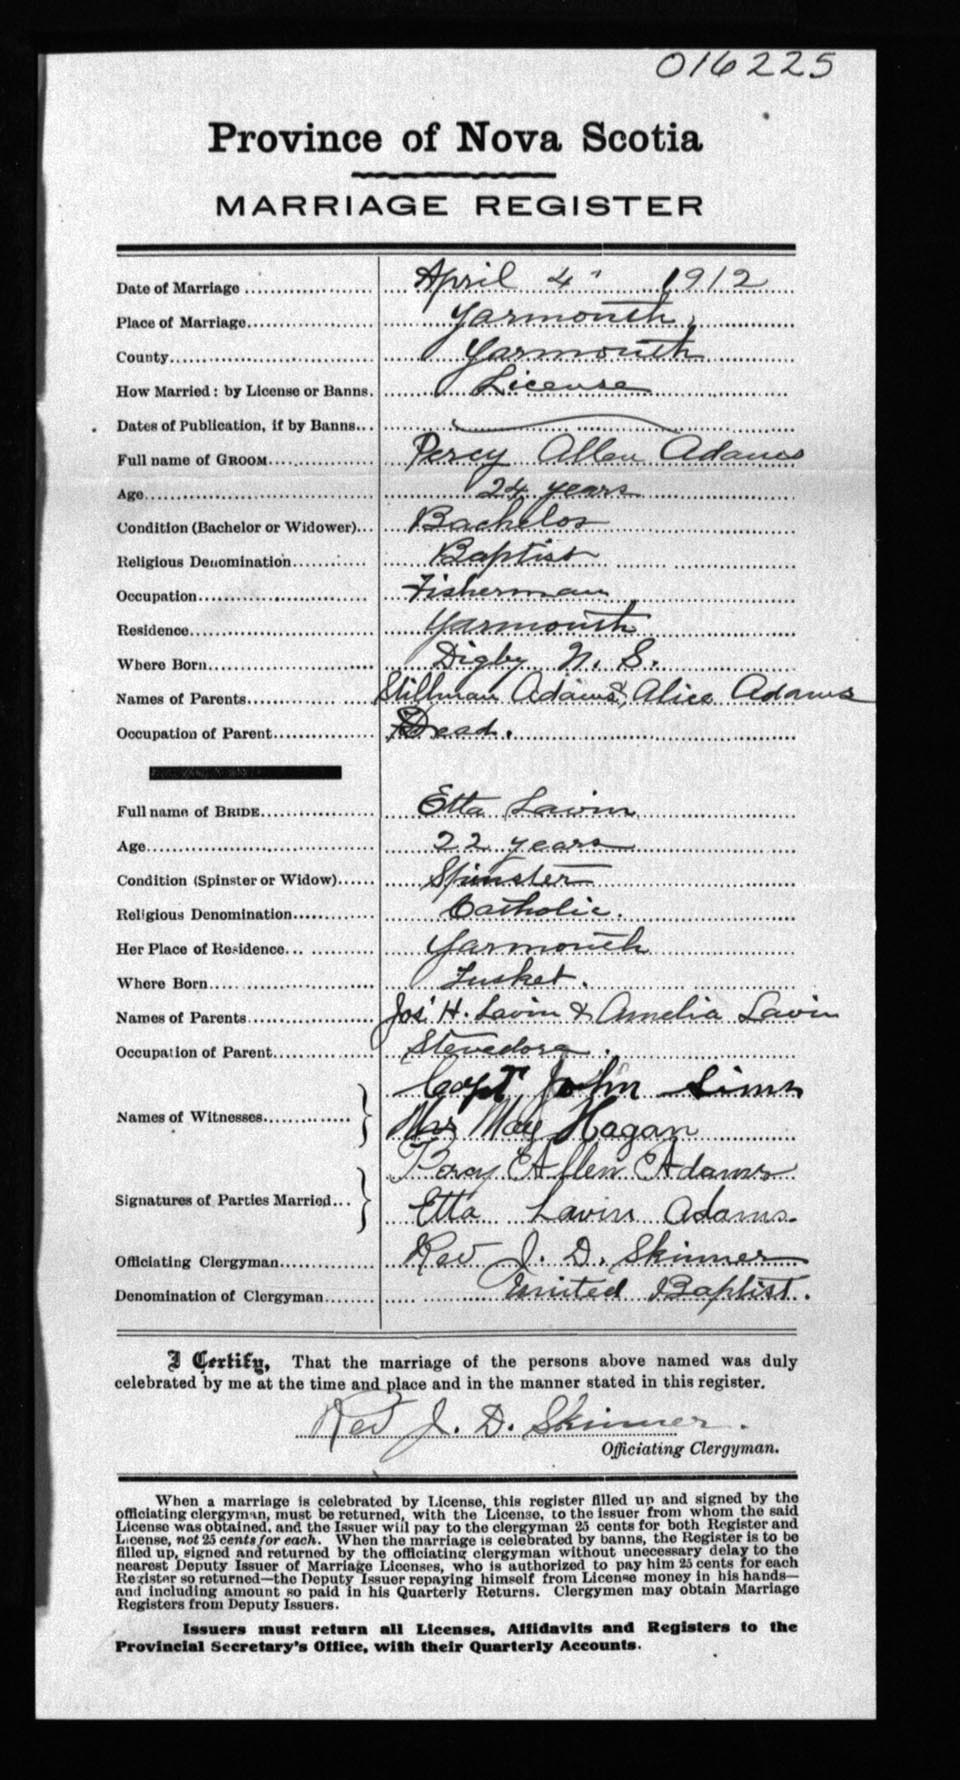 016225
Province of Nova Scotia
MARRIAGE REGISTER
Date of Marriage April 4" 1912
Place of Marriage Yarmouth,
County Yarmouth
How Married: by License or Banns. License
Dates of Publication, if by Banns
Full name of GROOM Percy Allen Adams
Age 24 years
Condition (Bachelor or Widower) Bachelor
Religious Denomination Baptist
Occupation Fisherman
Residence Yarmouth
Where Born Digby N. S.
Names of Parents Stillman Adams & Alice Adams
Occupation of Parent Dead.
Full name of BRIDE Etta Lavin
Age 22 years
Condition (Spinster or Widow) Spinster
Religious Denomination Catholic.
Her Place of Residence Yarmouth
Where Born Tusket.
Names of Parents Jos' H. Lavin & Amelia Lavin
Occupation of Parent Stevedore.
Names of Witnesses Capt John Sims
Mrs May Hagan
Signatures of Parties Married Percy Allen Adams
Etta Lavin Adams.
Officiating Clergyman Rev J. D. Skinner
Denomination of Clergyman United Baptist.
I Certify, That the marriage of the persons above named was duly
celebrated by me at the time and place and in the manner stated in this register.
Rev J. D. Skinner.
Officiating Clergyman.
When a marriage is celebrated by License, this register filled up and signed by the
officiating clergyman, must be returned, with the License, to the issuer from whom the said
License was obtained, and the Issuer will pay to the clergyman 25 cents for both Register and
License, not 25 cents for each. When the marriage is celebrated by banns, the Register is to be
filled up, signed and returned by the officiating clergyman without unnecessary delay to the
nearest Deputy Issuer of Marriage Licenses, who is authorized to pay him 25 cents for each
Register so returned—the Deputy Issuer repaying himself from License money in his hands—
and including amount so paid in his Quarterly Returns. Clergymen may obtain Marriage
Registers from Deputy Issuers.
Issuers must return all Licenses, Affidavits and Registers to the
Provincial Secretary's Office, with their Quarterly Accounts.